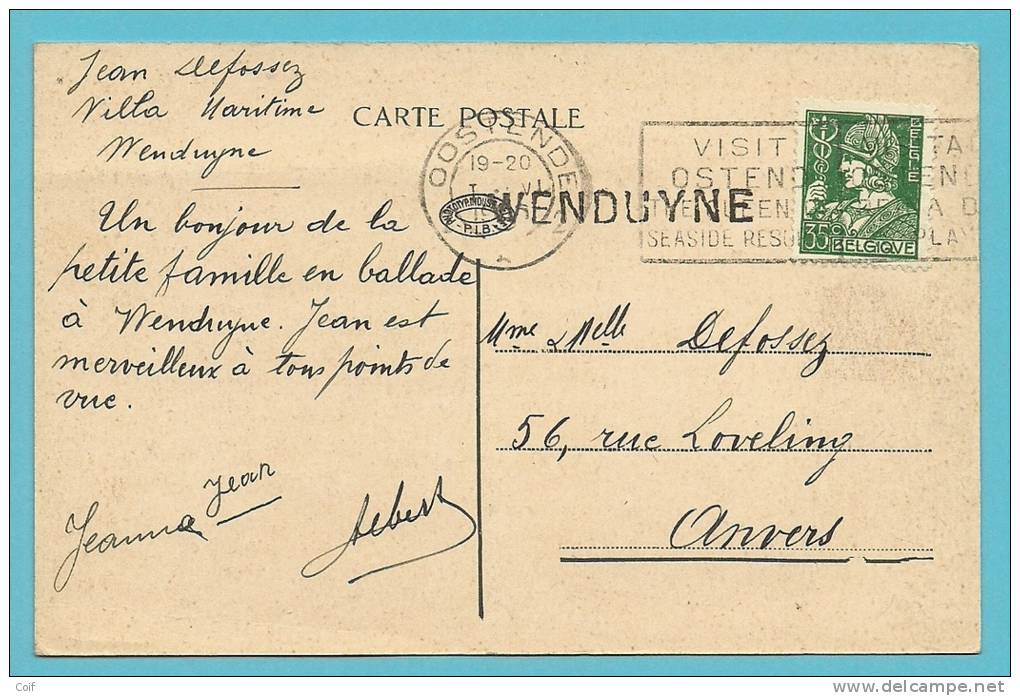 Jean Defossez
Villa Maritime
Wenduyne
CARTE POSTALE
OOSTENDE
19-20
VI
P.I.B.
WENDUYNE
VISIT
OSTEND
SEASIDE
BELGIE
35c
BELGIQVE
Un bonjour de la
petite famille en ballade
à Wenduyne. Jean est
merveilleux à tous points de
vue.
Jean
Jeanne
Mme & Melle Defossez
56, rue Loveling
Anvers
Coif
www.delcampe.net